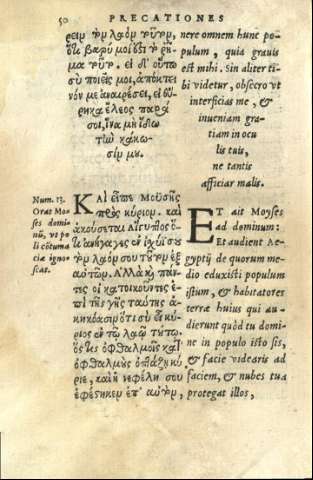 50 PRECATIONES
ρειμ ὑμ λαὸμ τοῦτομ,
ὅτι βαρύ μοι ὅτι ῥῆ
μα τοῦτο. εἰ δ' οὕτω
σὺ ποιεῖς μοι, ἀπόκτει
νόν με ἀναιρέσει, εἰ εὕ
ρηκα ἔλεος παρά
σοι, ἵνα μὴ ἴδω
τὼν κάκω-
σίμ μου.
nere omnem hunc po-
pulum, quia grauis
est mihi. Sin aliter ti-
bi videtur, obsecro vt
interficias me, &
inueniam gra-
tiam in ocu
lis tuis,
ne tantis
afficiar malis.
Num. 13.
Orat Mo-
ses domi-
nũ, vt po
puli cõtuma
cia ignos-
cas.
ΚΑὶ εἶπε Μωυσῆς
πρὸς κύριομ. καὶ
ἀκούσεται Αἴγυπτος ὅ-
τι ἀνήγαγες ἐν ἰχύϊ σου
τὸμ λαόμ σου τοῦτομ ἐξ
αὐτῶμ. Αλλὰ καὶ πάν-
τες οἱ κατοικοῦντες ἐ-
πὶ τῆς γῆς ταύτης ἀ-
κηκόασιμ ὅτι σὺ εἶ κύ-
ριος ἐν τῷ λαῷ τούτῳ,
ὅστις ὀφθαλμοῖς κατ'
ὀφθαλμοὺς ὀπτάζῃ κύ
ριε, καὶ ἡ νεφέλη σου
ἐφέστηκεμ ἐπ' αὐτῶμ,
ET ait Moyses
ad dominum:
Et audient Ae-
gyptij de quorum me-
dio eduxisti populum
istum, & habitatores
terræ huius qui au-
dierunt quòd tu domi-
ne in populo isto sis,
& facie videaris ad
faciem, & nubes tua
protegat illos,